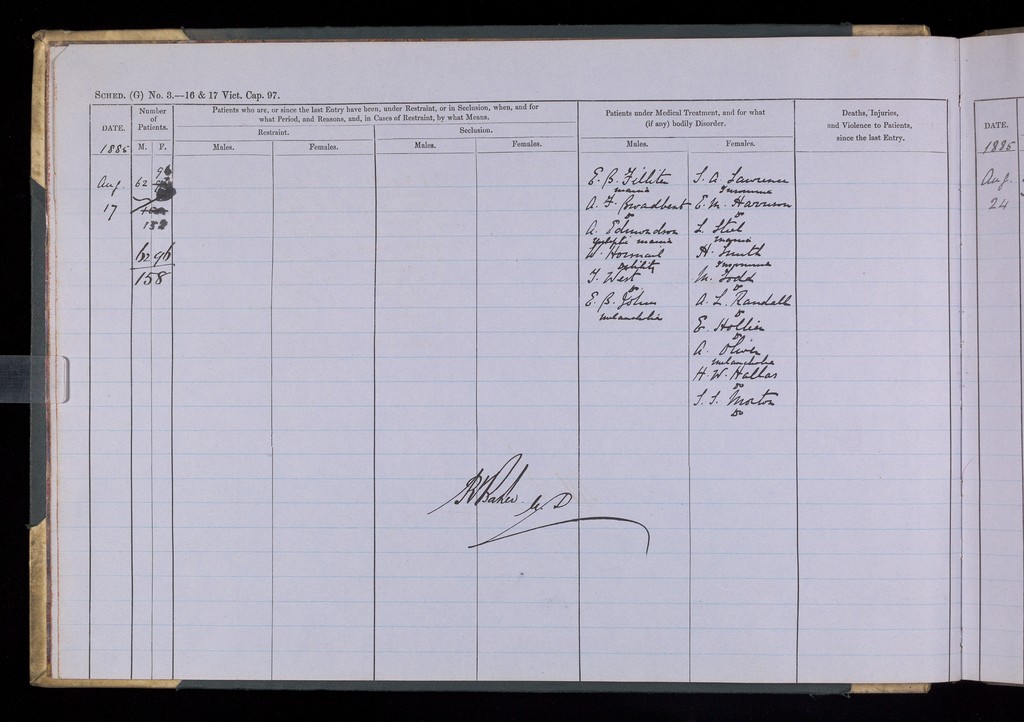 SCHED. (G) No. 3.—16 & 17 Vict. Cap. 97.
DATE.
Number of Patients.
Patients who are, or since the last Entry have been, under Restraint, or in Seclusion, when, and for
what Period, and Reasons, and, in Cases of Restraint, by what Means.
Patients under Medical Treatment, and for what
(if any) bodily Disorder.
Deaths, Injuries,
and Violence to Patients,
since the last Entry.
Restraint.
Seclusion.
1885
M. F.
Males.
Females.
Males.
Females.
Males.
Females.
Aug. 62 96
17
158
62 96
158
E. B. Filliter
mania
A. F. Broadbent
Do
A. Edmondson
Epileptic mania
W. Hormail
Debility
F. West
Do
E. B. John
melancholia
S. A. Lawrence
Insomnia
E. M. Harrison
Do
L. Steel
mania
H. Smith
Insomnia
M. Todd
Do
A. L. Randall
Do
E. Hollier
Do
A. Oliver
melancholia
H. W. Hallas
Do
S. S. Morton
Do
R Baker M.D
DATE.
1885
Aug.
24